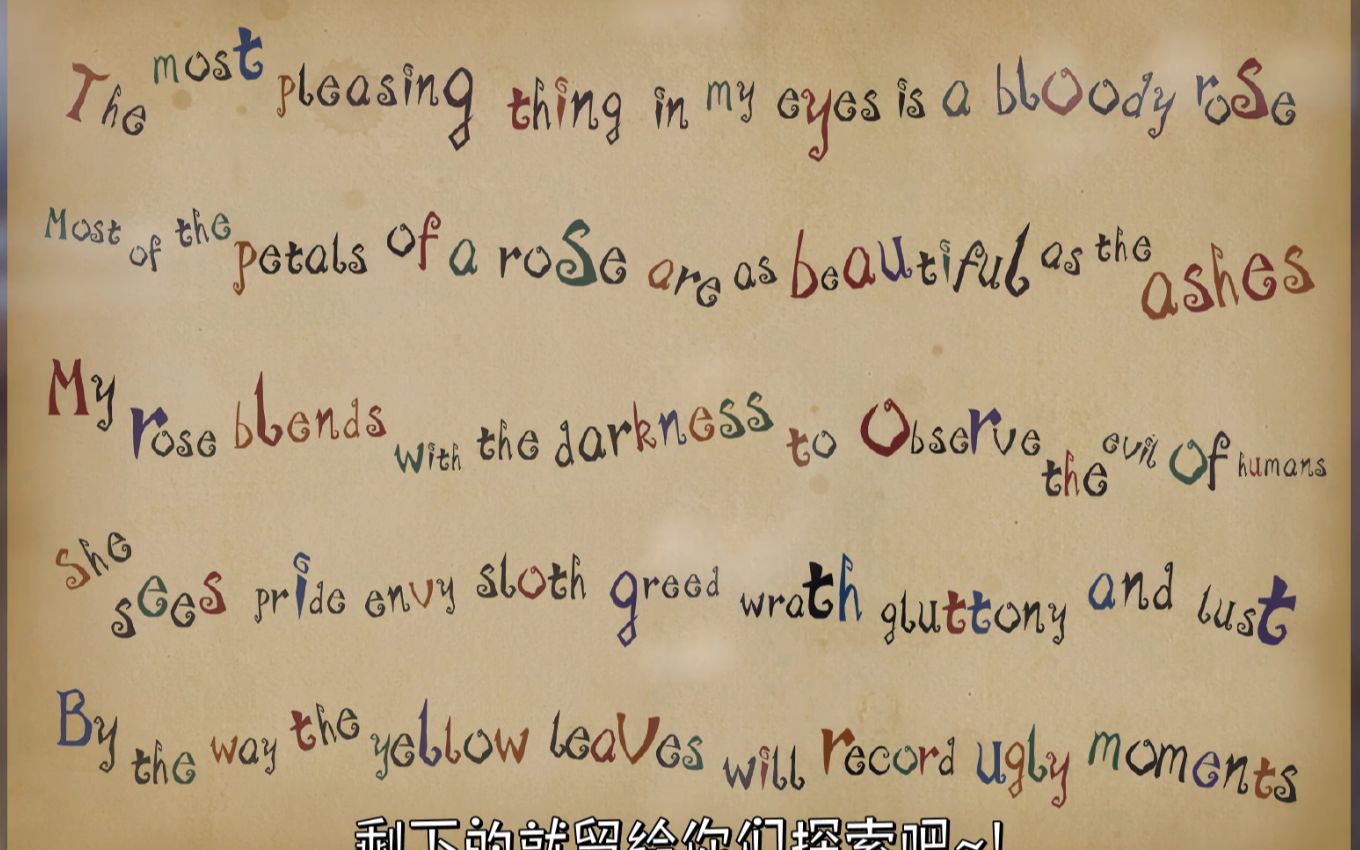 The most pleasing thing in my eyes is a bloody rose
Most of the petals of a rose are as beautiful as the ashes
My rose blends with the darkness to Observe the evil of humans
She sees pride envy sloth greed wrath gluttony and lust
By the way the yellow leaves will record ugly moments
剩下的就留给你们探索吧~!